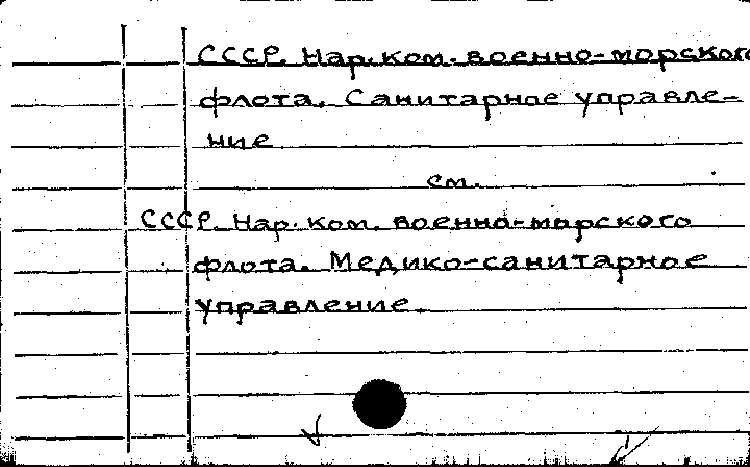 СССР. Нар. ком. военно-морского
флота. Санитарное управле-
ние
см.
СССР. Нар. ком. военно-морского
флота. Медико-санитарное
управление.